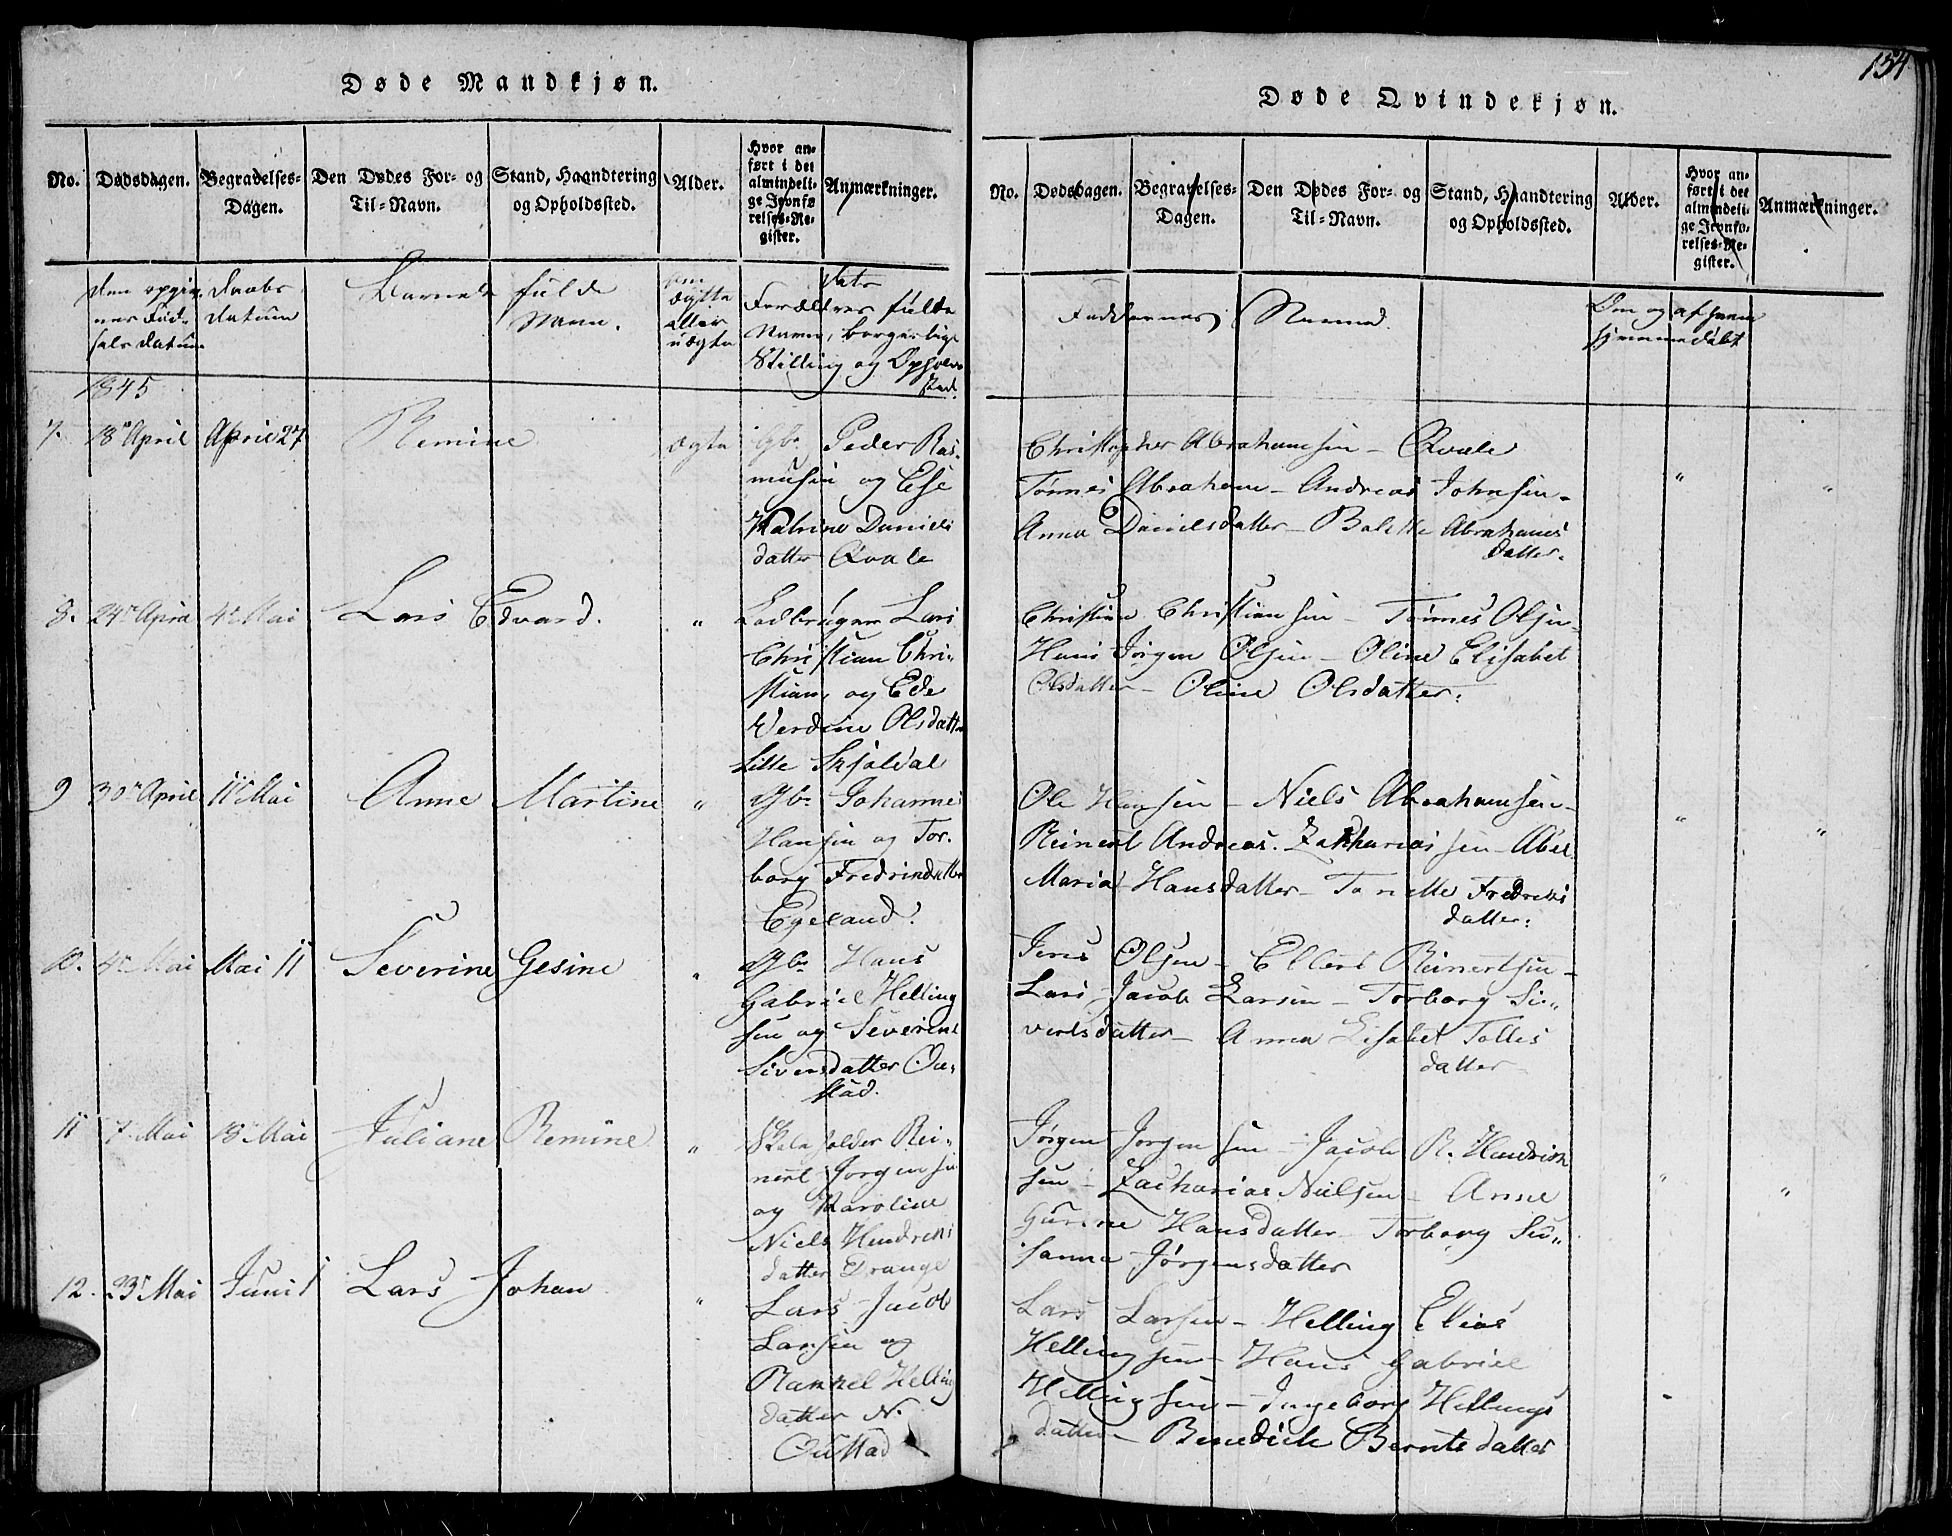 Døde Mandkjøn.
No. Dødsdagen. Begravelses-Dagen. Den Dødes For- og Til-Navn. Stand, Haandtering og Opholdssted. Alder. Hvor anført i det almindelige Jevnførelses-Register. Anmærkninger.
Den opgivnes Fødsels Datum
Daabs Datum
Barnets fulde Navn.
om ægte eller uægte
Forældres fulde
Navn, borgerlige
Stilling og Opholds
sted.
1845
7. 18de April April 27 Remine ægte Gbr. Peder Ras-
musen og Else
Katrine Daniels
datter Qvale
8. 24de April 4de Mai Lars Edvard. " Ladbruger Lars
Christian Chri-
stians og Ede
Verdine Olsdatter
Lille Skjoldal
9 30te April 11te Mai Anne Martine " Gbr. Johannes
Hansen og Tor-
borg Fredrinsdatter
Egeland.
10. 4de Mai Mai 11 Severine Gesine " Gbr Hans
Gabriel Helling
sen og Severine
Siversdatter Ou-
stad.
11 7. Mai 18de Mai Juliane Remine " Skoleholder Rei-
nert Jørgensen
og Karoline
Niels Hendriks
datter Drange
12. 23de Mai Juni 1 Lars Johan " Lars Jacob
Larsen og
Rankel Helling
datter N.
Oustad
154
Døde Qvindekjøn.
No. Dødsdagen. Begravelses-Dagen. Den Dødes For- og Til-Navn. Stand, Haandtering og Opholdssted. Alder. Hvor anført i det almindelige Jevnførelses-Register. Anmærkninger.
Faddernes Navne
Om og af hvem
hjemmedøbt
Christopher Abrahamsen – Qvale
Tønnes Abraham – Andreas Johnsen –
Anna Danielsdatter – Balette Abrahams
datter.
Christian Christiansen – Tønnes Olsen
Hans Jørgen Olsen – Oline Elisabet
Olsdatter – Oline Olsdatter.
Ole Hansen – Niels Abrahamsen –
Reinert Andreas. Zakkariassen – Abel
Maria Hansdatter – Tonette Fredriks
datter.
Jens Olsen – Ellert Reinertsen –
Lars Jacob Larsen – Torborg Si-
vertsdatter – Anna Lisabet Tolles
datter
Jørgen Jørgensen – Jacob R. Hendrik
sen – Zacharias Nielsen – Anne
Gurine Hansdatter – Torborg Su-
sanna Jørgensdatter
Lars Larsen – Helling Elias
Hellingsen – Hans Gabriel
Hellingsen – Ingeborg Hellings
datter – Benedicte Berntsdatter